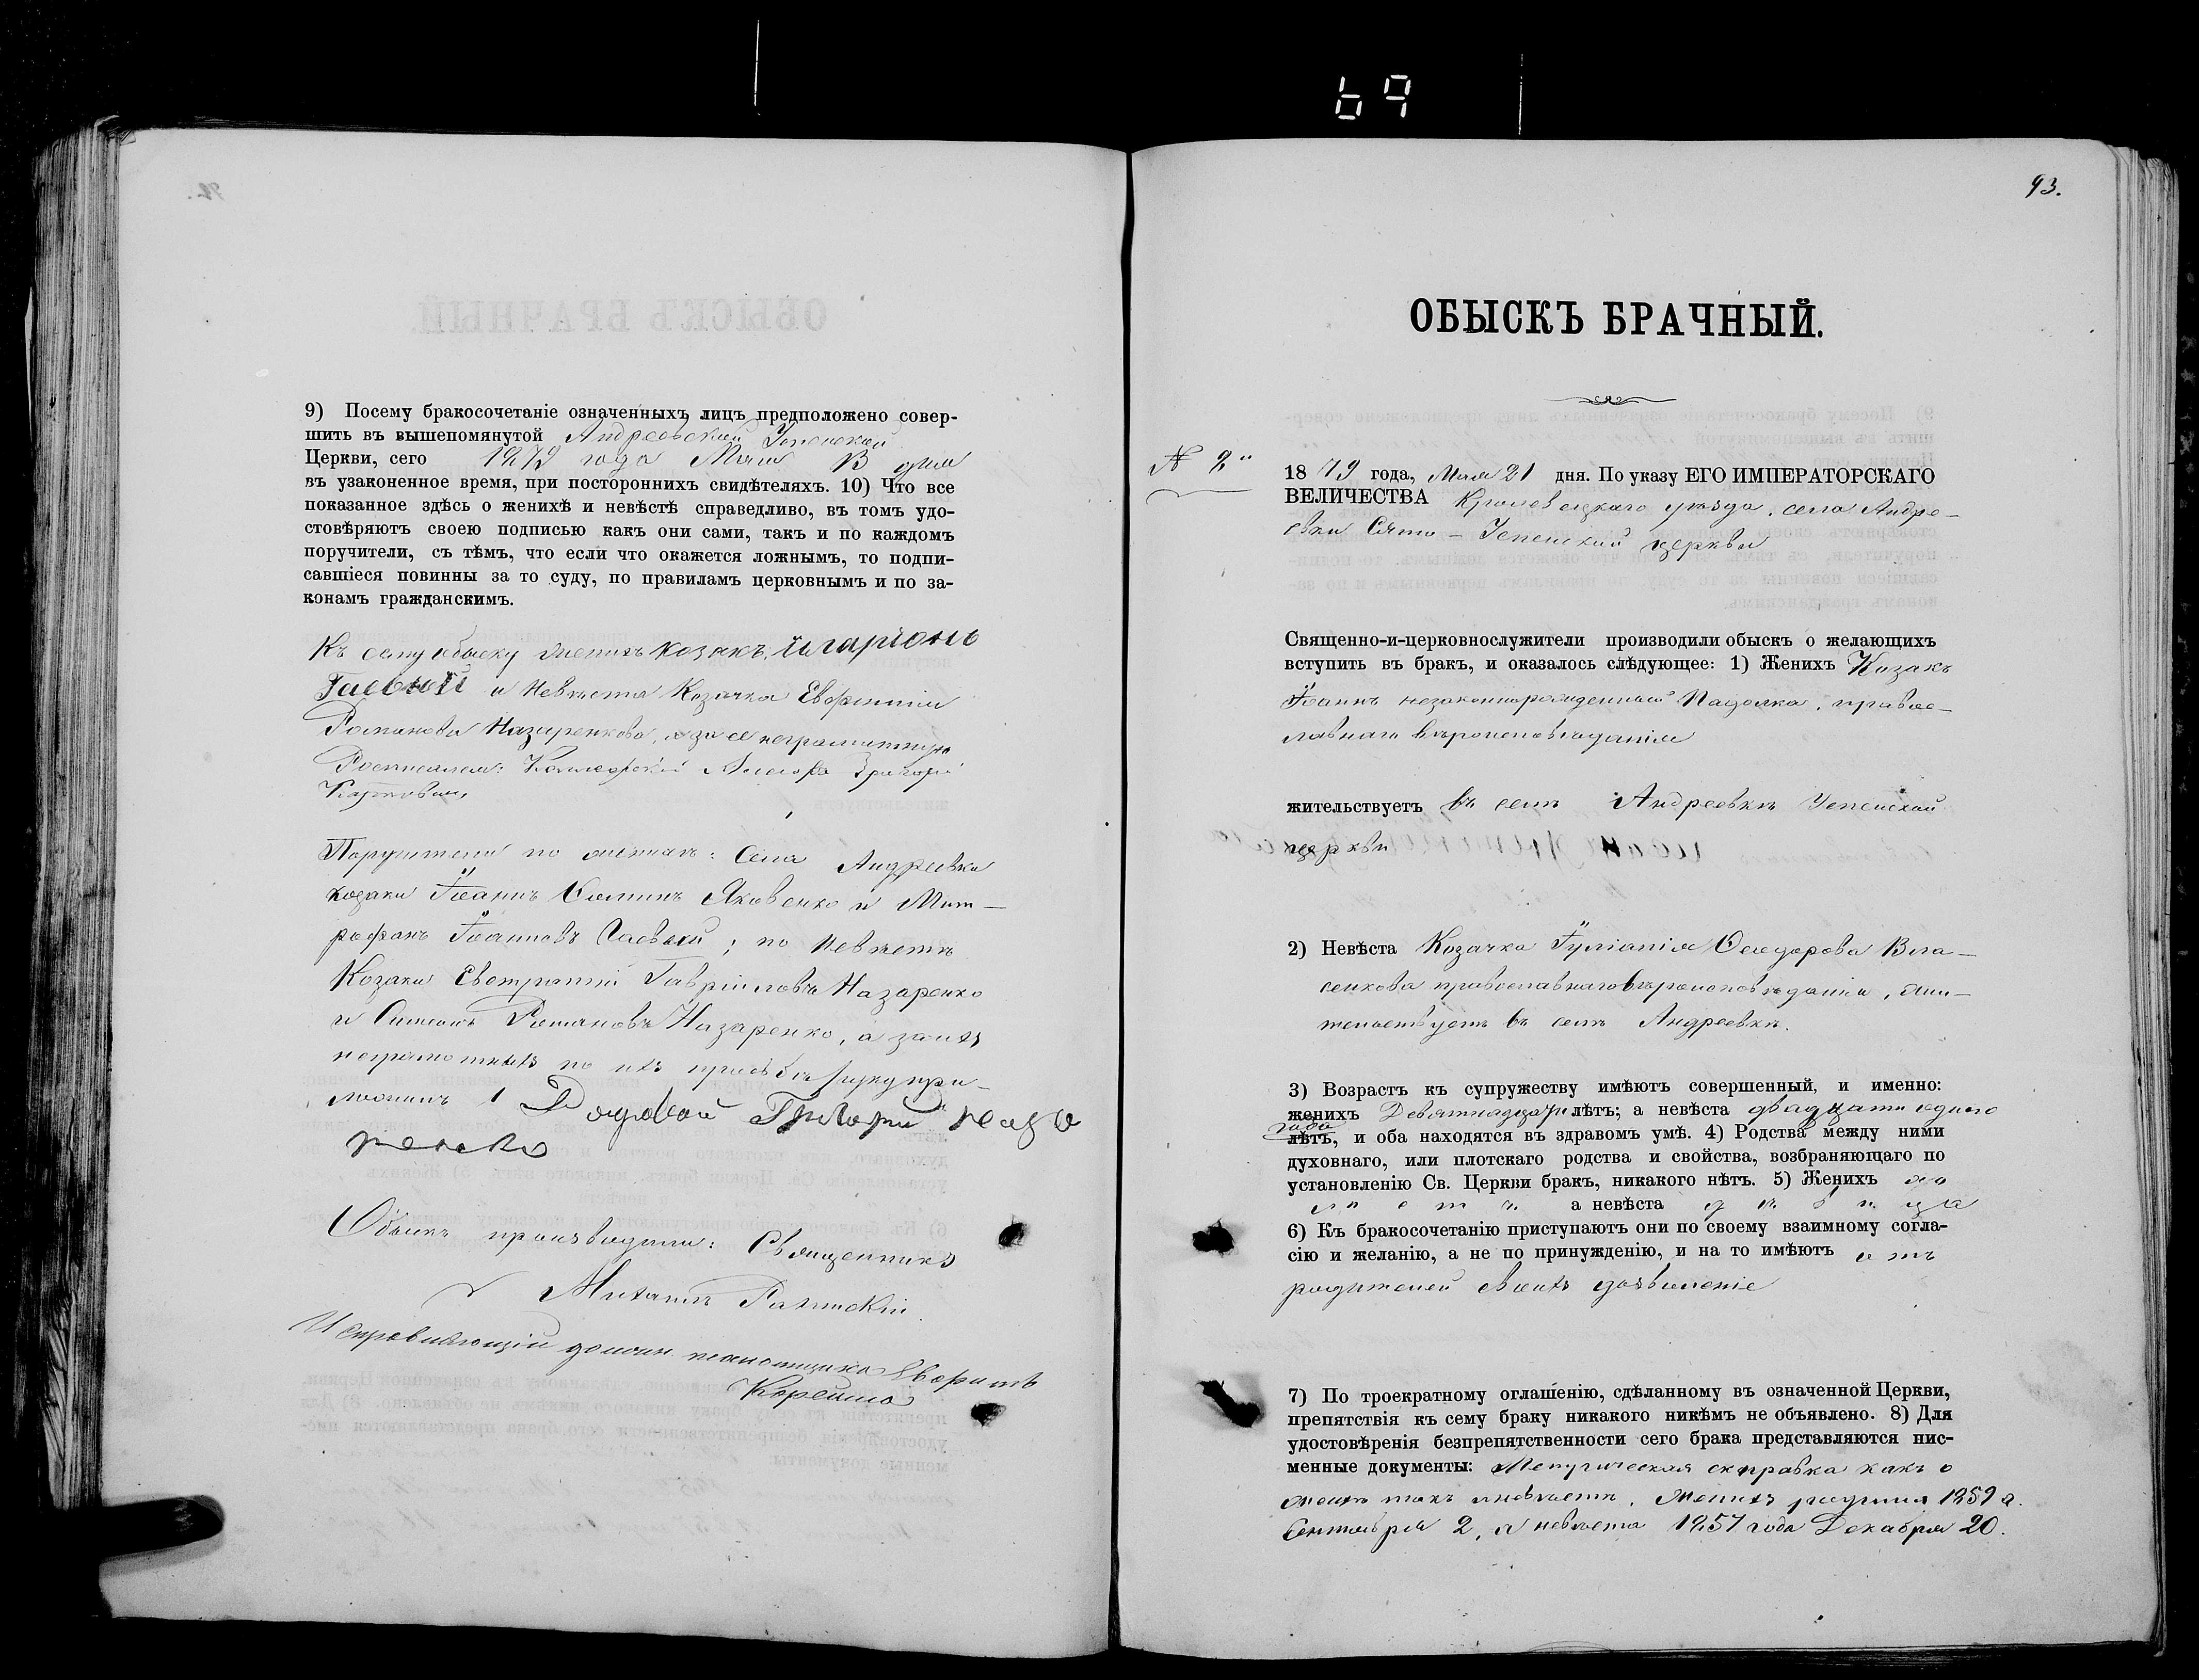 69
9) Посему бракосочетаніе означенныхъ лицъ предположено совер-
шить въ вышепомянутой Андреевской Успенской
Церкви, сего 1879 года Мая 13 дня
въ узаконенное время, при постороннихъ свидѣтеляхъ. 10) Что все
показанное здѣсь о женихѣ и невѣстѣ справедливо, въ томъ удо-
стовѣряютъ своею подписью какъ они сами, такъ и по каждомъ
поручители, съ тѣмъ, что если что окажется ложнымъ, то подпи-
савшіеся повинны за то суду, по правиламъ церковнымъ и по за-
конамъ гражданскимъ.
Къ сему обыску женихъ козакъ Иларіонъ
Гаевкій и Невѣста Козачка Евфимія
Романова Назаренкова, а за ее неграмотную
Росписался: Коллежскій Григорій
Поручители по женихѣ: Села Андреевки
козаки Іоаннъ Яковенко и Мит-
рофанъ Іоанновъ Гаевкій; по Невѣстѣ
Козаки Евстратій Гавріиловъ Назаренко
и Симеонъ Романовъ Назаренко, а за ихъ
неграмотныхъ по ихъ прозьбѣ руку при-
ложилъ Григорий Наза
ренко
Обыскъ производили: Священникъ
Михаилъ
Исправляющій должн. псаломщика
93.
ОБЫСКЪ БРАЧНЫЙ.
№ 8й
1879 года, Мая 21 дня. По указу ЕГО ИМПЕРАТОРСКАГО
ВЕЛИЧЕСТВА Кролевецкаго уѣзда, села Андре-
евки Свято-Успенской церкви
Священно-и-церковнослужители производили обыскъ о желающихъ
вступить въ бракъ, и оказалось слѣдующее: 1) Женихъ Козакъ
Іоаннъ незаконнорожденный Падолка, правос-
лавнаго вѣроисповѣданія
жительствуетъ въ селѣ Андреевкѣ Успенской
церкви
2) Невѣста Козачка Іуліанія Феодорова Вла-
сенкова православнаго вѣроисповѣданія, жи-
тельствуетъ въ селѣ Андреевкѣ.
3) Возрастъ къ супружеству имѣютъ совершенный, и именно:
женихъ Девятнадцати лѣтъ; а невѣста двадцати одного
года
лѣтъ, и оба находятся въ здравомъ умѣ. 4) Родства между ними
духовнаго, или плотскаго родства и свойства, возбраняющаго по
установленію Св. Церкви бракъ, никакого нѣтъ. 5) Женихъ хо
лостъ а невѣста дѣвица
6) Къ бракосочетанію приступаютъ они по своему взаимному согла-
сію и желанію, а не по принужденію, и на то имѣютъ отъ
родителей своихъ дозволеніе
7) По троекратному оглашенію, сдѣланному въ означенной Церкви,
препятствія къ сему браку никакого никѣмъ не объявлено. 8) Для
удостовѣренія безпрепятственности сего брака представляются пис-
менные документы: Метрическая справка какъ о
женихѣ такъ и невѣстѣ. Женихъ родился 1859 г.
Сентября 2, а невѣста 1857 года Декабря 20.